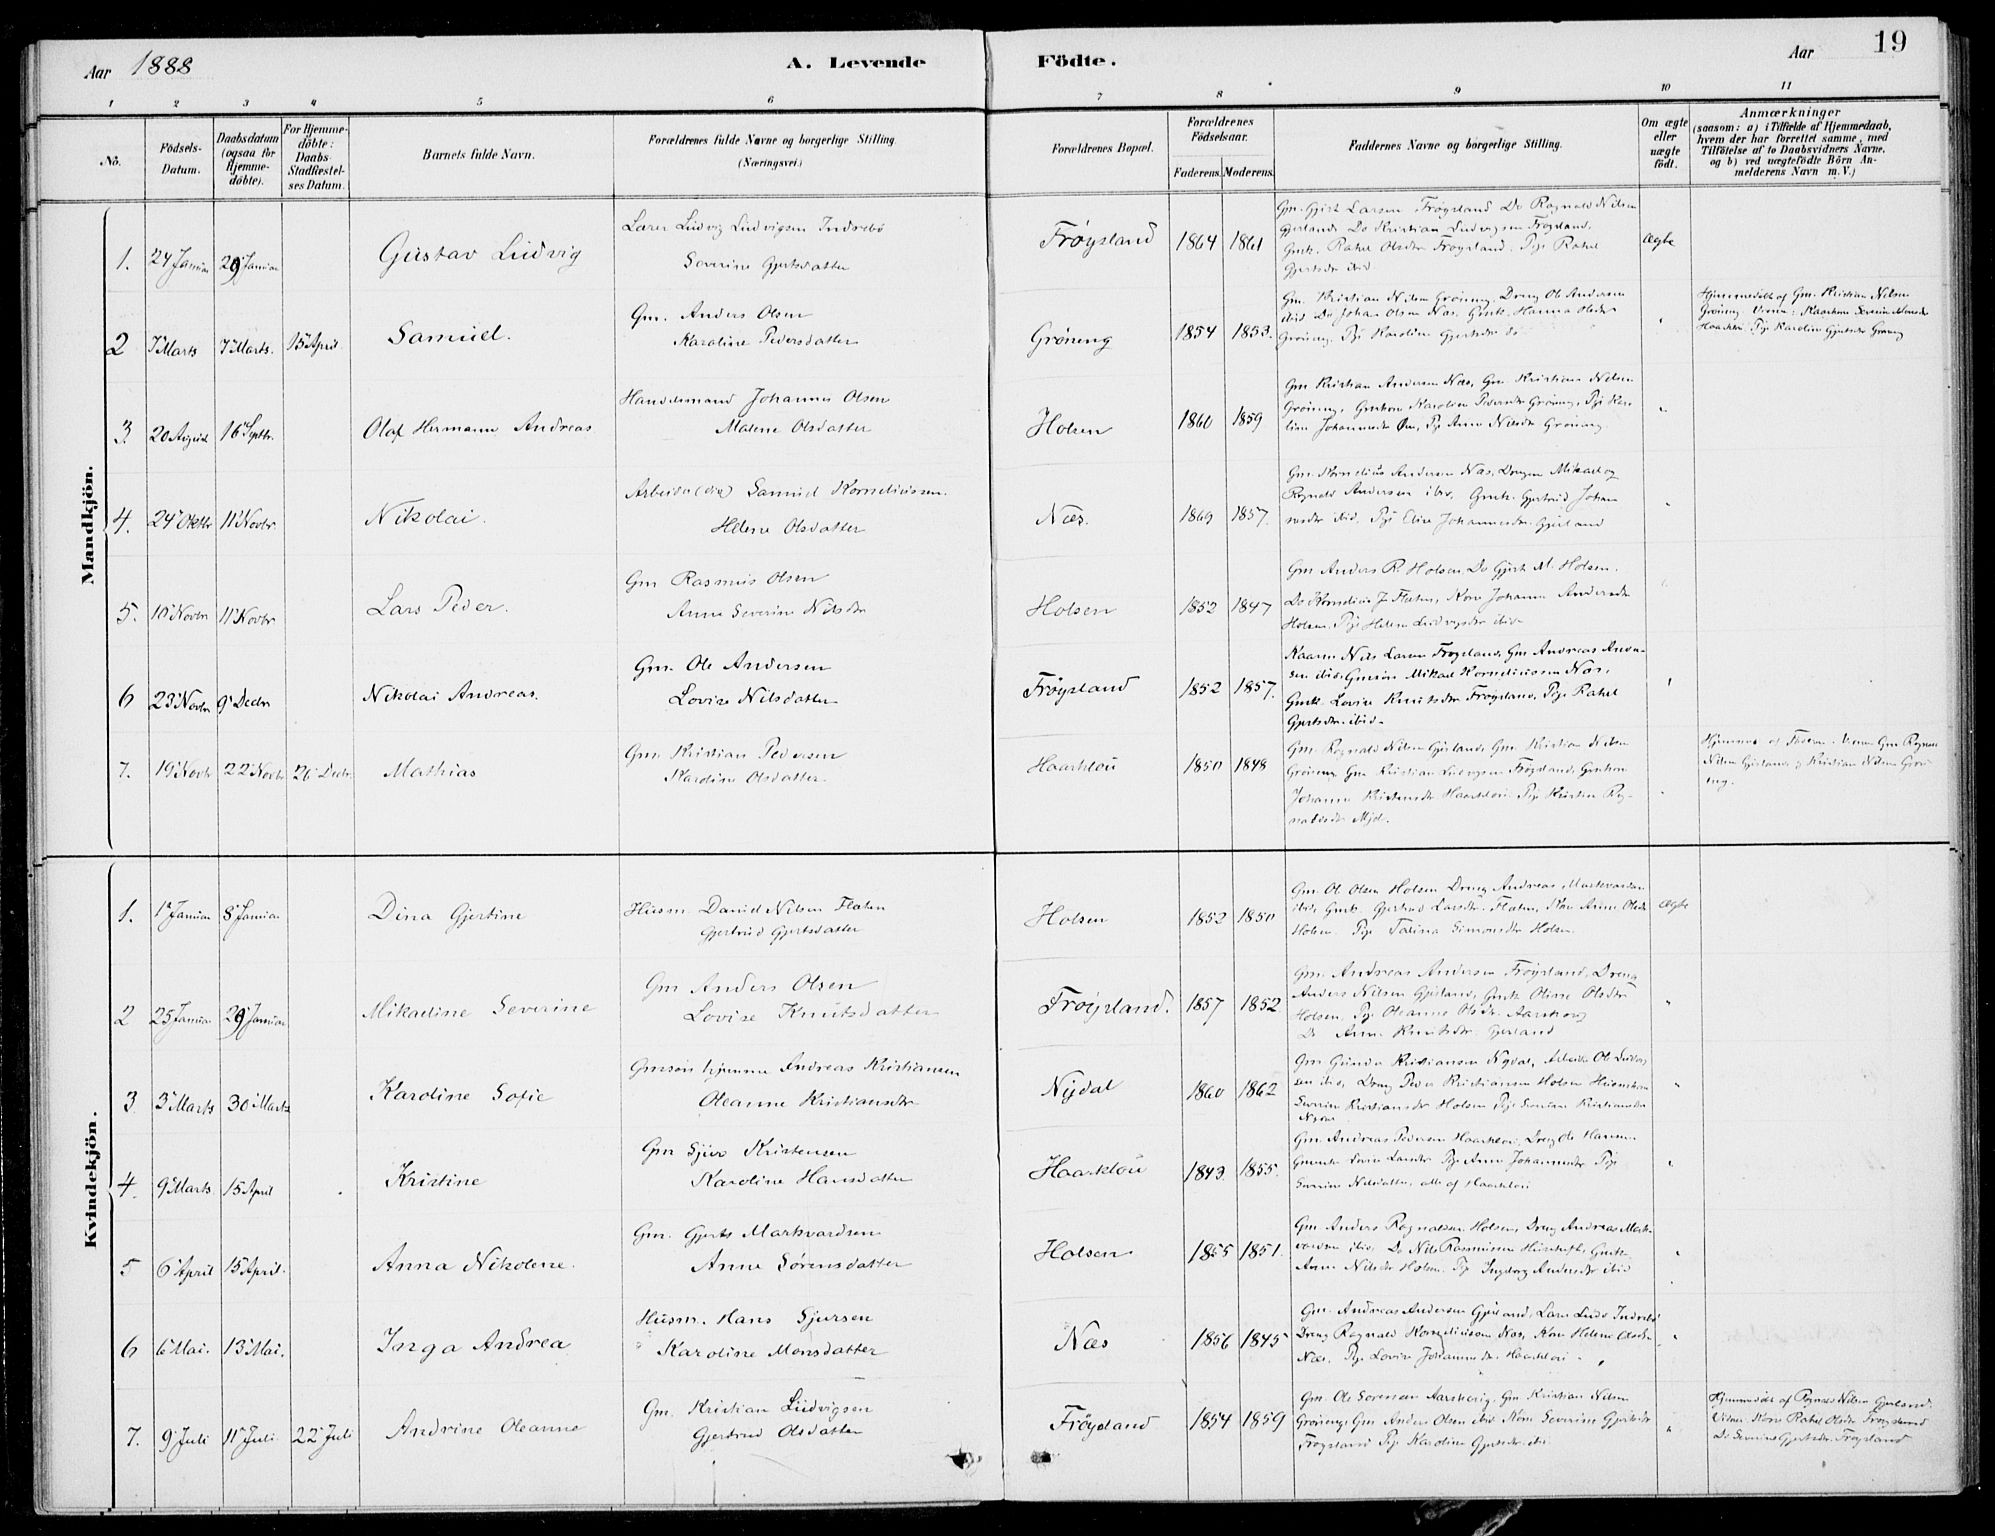 Aar 1888 A. Levende Födte. Aar 19
1 2 3 4 5 6 7 8 9 10 11
No.
Födsels-Datum.
Daabsdatum (ogsaa for Hjemmedöbte).
For Hjemmedöbte: Daabs-Stadfæstelses Datum.
Barnets fulde Navn.
Forældrenes fulde Navne og borgerlige Stilling (Næringsvei.)
Forældrenes Bopæl.
Forældrenes Födselsaar.
Faderens. Moderens.
Faddernes Navne og borgerlige Stilling.
Om ægte eller uægte födt.
Anmærkninger
(saasom: a) i Tilfælde af Hjemmedaab,
hvem der har forrettet samme, med
Tilföielse af to Daabsvidners Navne,
og b) ved uægtefödte Börn An-
melderens Navn m. V.)
Mandkjön.
Lærer Ludvig Ludvigsen Indrebö
Gm. Gjert Larsen Frøysland Do Ragnald Nilsen
Gjerland Do Kristian Ludvigsen Frøysland,
1. 24 Januar 29 Januar Gustav Ludvig Severine Gjertsdatter Frøysland 1864 1861 Ægte
Gmk. Rakel Olsdtr Frøysland. Pige Rakel
Gjertsdr ibid
Gm. Anders Olsen
Gm. Kristian Nilsen Grøneng. Dreng Ole Andersen
ibid Do Johan Olsen Næs. Gmk. Hanna Olsdr
2 7 Marts 7 Marts. 15 April Samuel. Karoline Pedersdatter Grøneng 1854 1853.
Grøneng. Pige Karoline Gjertsdr do
Hjemmedöbt af Gm. Kristian Nilsen
Haarklou Pige Karoline Gjertsdr Grøneng
Handelsmand Johannes Olsen
Gm Kristian Andersen Næs, Gm Kristian Nilsen
Grøneng, Gmkone Karoline Pedersdr Grøneng, Pige Karo-
3 20 August 16 Septbr. Olaf Hermann Andreas Malene Olsdatter Holsen 1860 1859
line Johannesdr Øen, Pige Anne Nilsdr Grøneng.
Arbeider Samuel Korneliussen.
Gm. Kornelius Andersen Næs, Drengen Mikael og
Ragnald Andersen ibid, Gmk. Gjertrud Johan
4. 24 Oktbr 11 Novbr. Nikolai. Helene Olsdatter Næs. 1869 1857.
nesdr ibid. Pige Eline Johannesdr. Gjerland
Gm Rasmus Olsen
Gm Anders R. Holsen, Do Gjert M. Holsen.
5. 10 Novbr 11 Novbr Lars Peder. Anne Severine Nilsdtr Holsen 1852 1847
Do Kornelius J. Flaten, Kone Johanne Andersdr
Holsen. Pige Helene Ludvigsdr ibid.
Gm. Ole Andersen
Kaarm Nils Larsen Frøysland, Gm Andreas Ander-
sen ibid, Gmsøn Mikael Korneliussen Næs,
6 23 Novbr 9 Decbr Nikolai Andreas. Lovise Nilsdatter Frøysland 1852 1857.
Gmk. Lovise Knutsdr Frøysland, Pige Rakel
Gjertsdr. ibid.
Gm. Kristian Pedersen
Gm. Ragnald Nilsen Gjerland, Gm Kristian Nilsen
7. 19 Novbr 22 Novbr 26 Decbr. Mathias Karoline Olsdatter Haarklou 1850 1848
Grøneng Gm Kristian Ludvigsen Frøysland, Gmkone
Johanne Kristensdr Haarklou Pige Kristine Rag-
naldsdr Mjel.
Nilsen Gjerland, og Kristian Nilsen Grøn-
eng.
Kvindekjön.
Gm. Ole Olsen Holsen Dreng Andreas Markvardsen
1. 1 Januar 8 Januar Dina Gjertine Husm. David Nilsen Flaten Holsen 1852 1850 ægte
ibid, Gmk. Gjertrud Larsdtr. Flaten, Kone Anne Olsdr
Gjertrud Gjertsdatter
Holsen. Pige Talina Simonsdtr Holsen.
Gm Anders Olsen
Gm. Andreas Andersen Frøysland, Dreng
Anders Nilsen Gjerland, Gmk Oline Olsdtr
2 25 Januar 29 Januar Mikaeline Severine Lovise Knutsdatter Frøysland. 1857 1852
Holsen. Pige Oleanne Olsdr. Aarskog
Do Anne Knutsdr. Gjerland
Gmsøn hjemme Andreas Kristiansen
Gm. Gunder Kristiansen Nydal, Arbeider Ole Ludvig-
3 3 Marts 30 Marts Karoline Sofie Oleanne Kristiansdtr Nydal 1860 1862
sen ibid, Dreng Peder Kristiansen Holsen
Severine Kristiansdr Holsen Pige Severine Kristiansdr
Nydal
Gm Sjur Kristensen
Gm Andreas Pedersen Haarklou, Dreng Ole Hansen
4. 9 Marts 15 April Kristine Karoline Hansdatter Haarklou 1843. 1855.
Pige Anne Johannesdr Pige
Severine Nilsdatter, alle af Haarklou
Gm. Gjert Markvardsen
Gm Anders Ragnaldsen Holsen, Dreng Andreas Mark-
5 6 April 15 April. Anna Nikolene. Anne Sørensdatter Holsen 1855 1851.
vardsen ibid, Do Nils Rasmussen
Anne Nilsdr Holsen. Pige Ingeborg Andersdr ibid
Husm. Hans Sjursen
Gm. Andreas Andersen Gjerland, Lærer Ludv Indrebö
6 6 Mai. 13 Mai. Inga Andrea Karoline Monsdatter Næs 1856 1845
Dreng Ragnald Korneliussen Næs, Kone Helene Olsdr
Næs. Pige Lovise Johannesdr. Haarklou
Gm. Kristian Ludvigsen
Gm. Ole Sørensen Aarskog, Gm Kristian Nilsen
7. 9 Juli 11 Juli 22 Juli Andrine Oleanne Gjertrud Olsdatter Frøysland 1854 1859
Grøneng, Gm Anders Olsen ibid Kone Severine Gjertsdr
Frøysland Pige Karoline Gjertsdr. ibid
Hjemmedöbt af Ragnald Nilsen Gjerland.
Vidner. Kone Rakel Olsdr Frøysland
Do Severine Gjertsdr. Frøysland